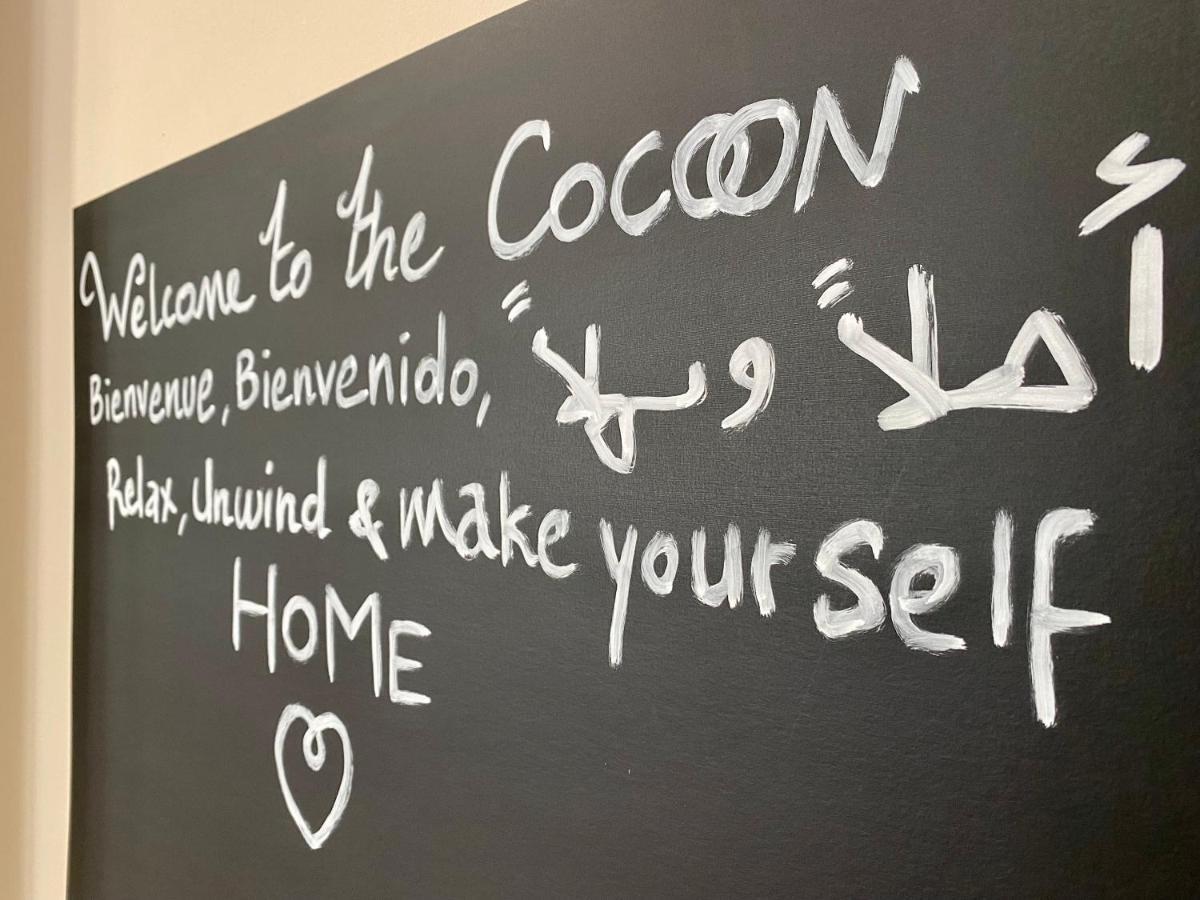 Welcome to the COCOON
Bienvenue, Bienvenido, أهلاً وسهلاً
Relax, Unwind & make yourself
HOME